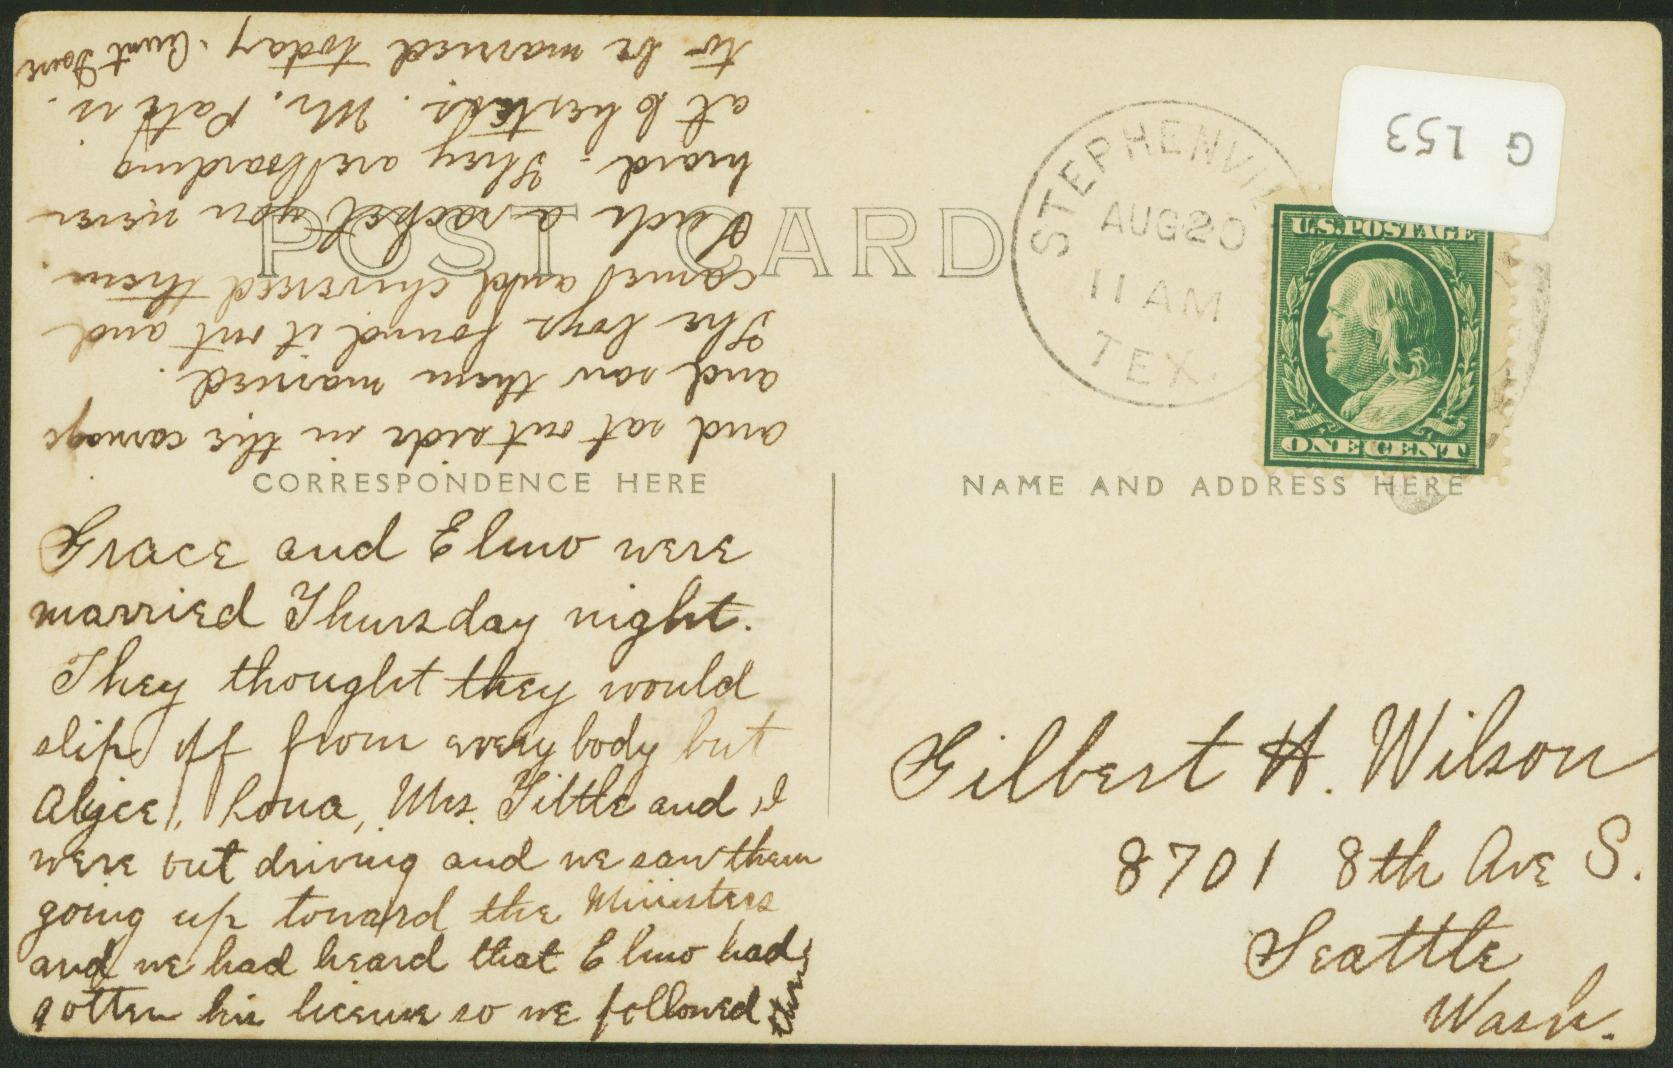 POST CARD
CORRESPONDENCE HERE
NAME AND ADDRESS HERE
STEPHENVIL
AUG 20
11 AM
TEX.
U.S. POSTAGE
ONE CENT
G 153
Grace and Elmo were
married Thursday night.
They thought they would
slip off from every body but
Alyce, Lona, Mrs. Tittle and I
were out driving and we saw them
going up toward the Ministers
and we had heard that Elmo had
gotten his license so we followed them
and sat outside in the carriage
and saw them married.
The boys found it out and
came and chivereed them.
Such a racket you never
heard. They are boarding
at Mr. Pate is
to be married today. Aunt
Gilbert H. Wilson
8701 8th Ave S.
Seattle
Wash.